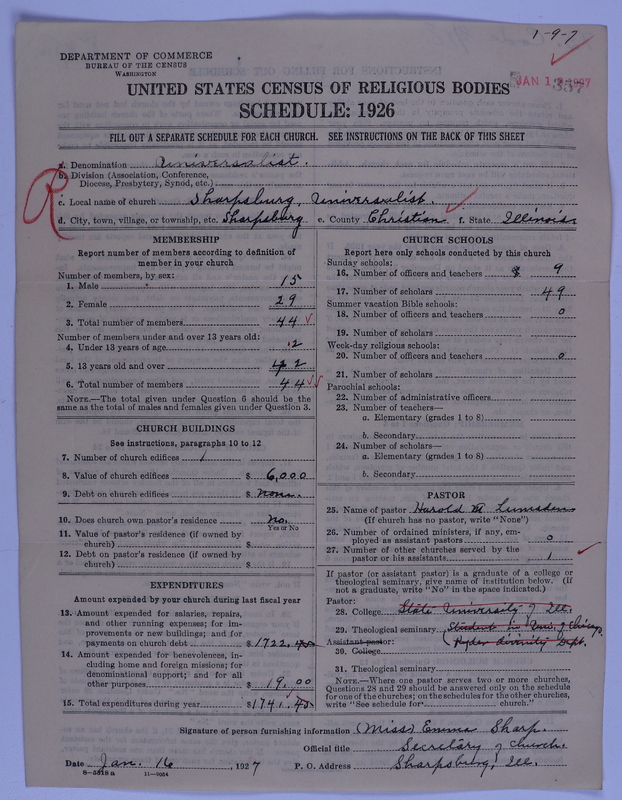 1-9-7
DEPARTMENT OF COMMERCE
BUREAU OF THE CENSUS
WASHINGTON
JAN 1 1927
337
UNITED STATES CENSUS OF RELIGIOUS BODIES
SCHEDULE: 1926
FILL OUT A SEPARATE SCHEDULE FOR EACH CHURCH. SEE INSTRUCTIONS ON THE BACK OF THIS SHEET
R
a. Denomination Universalist.
b. Division (Association, Conference, Diocese, Presbytery, Synod, etc.)
c. Local name of church Sharpsburg Universalist.
d. City, town, village, or township, etc. Sharpsburg e. County Christian f. State Illinois
MEMBERSHIP
Report number of members according to definition of
member in your church
Number of members, by sex:
1. Male 15
2. Female 29
3. Total number of members 44
Number of members under and over 13 years old:
4. Under 13 years of age 2
5. 13 years old and over 42
6. Total number of members 44
NOTE.—The total given under Question 6 should be
same as the total of males and females given under Question 3.
CHURCH BUILDINGS
See instructions, paragraphs 10 to 12
7. Number of church edifices 1
8. Value of church edifices $ 6,000
9. Debt on church edifices $ None.
10. Does church own pastor's residence No.
Yes or No
11. Value of pastor's residence (if owned by
church) $
12. Debt on pastor's residence (if owned by
church) $
EXPENDITURES
Amount expended by your church during last fiscal year
13. Amount expended for salaries, repairs,
and other running expenses; for im-
provements or new buildings; and for
payments on church debt $ 1722.45
14. Amount expended for benevolences, in-
cluding home and foreign missions; for
denominational support; and for all
other purposes $ 19.00
15. Total expenditures during year $ 1741.45
CHURCH SCHOOLS
Report here only schools conducted by this church
Sunday schools:
16. Number of officers and teachers 9
17. Number of scholars 49
Summer vacation Bible schools:
18. Number of officers and teachers 0
19. Number of scholars
Week-day religious schools:
20. Number of officers and teachers 0
21. Number of scholars
Parochial schools:
22. Number of administrative officers
23. Number of teachers—
a. Elementary (grades 1 to 8)
b. Secondary
24. Number of scholars—
a. Elementary (grades 1 to 8)
b. Secondary
PASTOR
25. Name of pastor Harold M Lumsden
(If church has no pastor, write "None")
26. Number of ordained ministers, if any, em-
ployed as assistant pastors 0
27. Number of other churches served by the
pastor or his assistants 1
If pastor (or assistant pastor) is a graduate of a college or
theological seminary, give name of institution below. (If
not a graduate, write "No" in the space indicated.)
Pastor:
28. College State University of Ill.
29. Theological seminary Student in Uni. of Chicago
Assistant pastor: (Ryder Divinity Dept.
30. College
31. Theological seminary
NOTE.—Where one pastor serves two or more churches,
Questions 28 and 29 should be answered only on the schedule
for one of the churches; on the schedules for the other churches,
write "See schedule for church."
Signature of person furnishing information (Miss) Emma Sharp.
Official title Secretary of Church.
Date Jan. 16, 1927 P. O. Address Sharpsburg, Ill.
8—5518a 11—9054